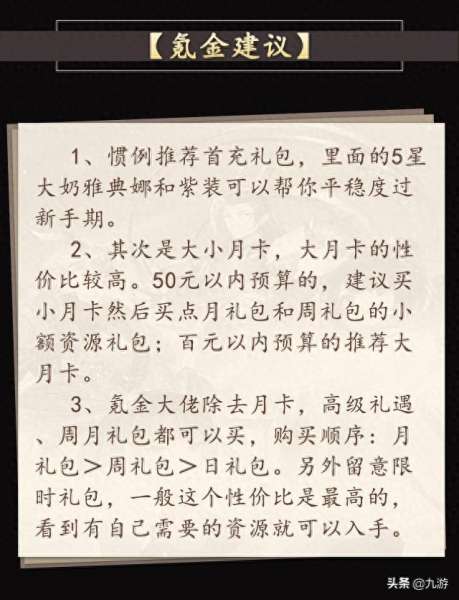 【氪金建议】
1、惯例推荐首充礼包，里面的5星
大奶雅典娜和紫装可以帮你平稳度过
新手期。
2、其次是大小月卡，大月卡的性
价比较高。50元以内预算的，建议买
小月卡然后买点月礼包和周礼包的小
额资源礼包；百元以内预算的推荐大
月卡。
3、氪金大佬除去月卡，高级礼遇
、周月礼包都可以买，购买顺序：月
礼包＞周礼包＞日礼包。另外留意限
时礼包，一般这个性价比是最高的，
看到有自己需要的资源就可以入手。
头条 @九游